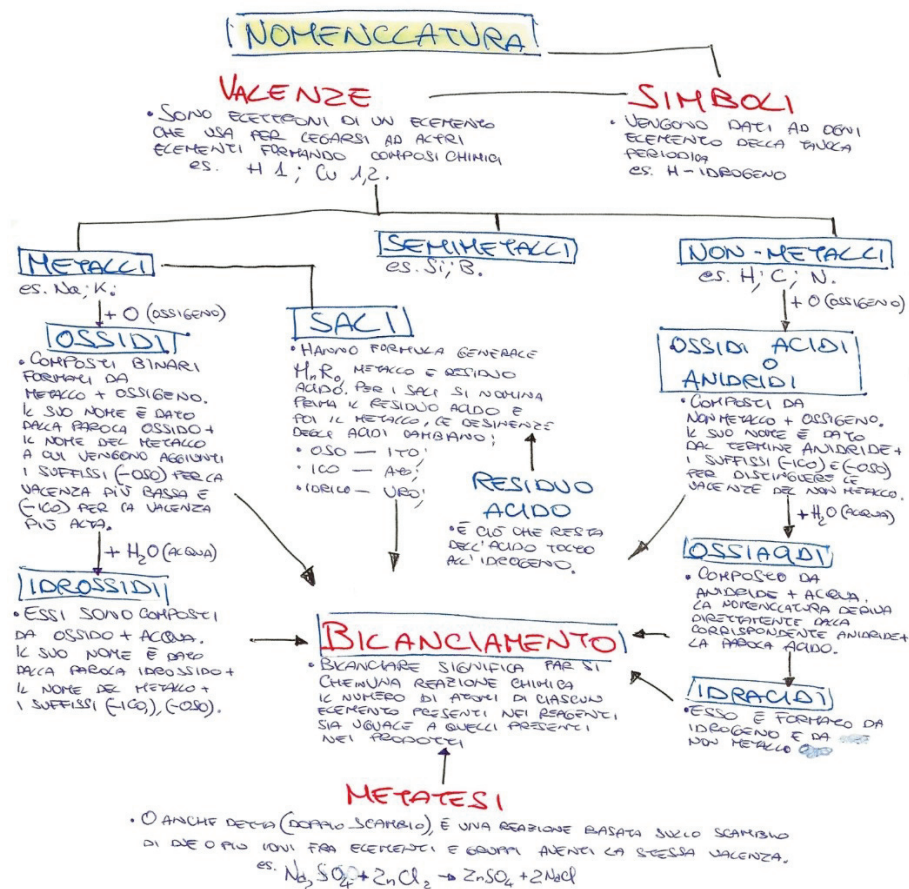 NOMENCLATURA
VALENZE
• SONO ELETTRONI DI UN ELEMENTO
CHE USA PER LEGARSI AD ALTRI
ELEMENTI FORMANDO COMPOSI CHIMICI
es. H 1; Cu 1,2.
SIMBOLI
• VENGONO DATI AD OGNI
ELEMENTO DELLA TAVOLA
PERIODICA
es. H-IDROGENO
METALLI
es. Na; K;
+ O (OSSIGENO)
OSSIDI
• COMPOSTI BINARI
FORMATI DA
METALLO + OSSIGENO.
IL SUO NOME È DATO
DALLA PAROLA OSSIDO +
IL NOME DEL METALLO
A CUI VENGONO AGGIUNTI
I SUFFISSI (-OSO) PER LA
VALENZA PIÙ BASSA E
(-ICO) PER LA VALENZA
PIÙ ALTA.
+ H₂O (ACQUA)
IDROSSIDI
• ESSI SONO COMPOSTI
DA OSSIDO + ACQUA.
IL SUO NOME È DATO
DALLA PAROLA IDROSSIDO +
IL NOME DEL METALLO +
I SUFFISSI (-ICO), (-OSO).
SEMIMETALLI
es. Si; B.
SALI
• HANNO FORMULA GENERALE
METALLO E RESIDUO
ACIDO. PER I SALI SI NOMINA
PRIMA IL RESIDUO ACIDO E
POI IL METALLO, LE DESINENZE
DEGLI ACIDI CAMBIANO;
• OSO — ITO;
• ICO — ATO;
• IDRICO — URO;
RESIDUO
ACIDO
• È CIÒ CHE RESTA
DELL'ACIDO TOLTO
ALL'IDROGENO.
NON-METALLI
es. H; C; N.
+ O (OSSIGENO)
OSSIDI ACIDI
O
ANIDRIDI
• COMPOSTI DA
NON METALLO + OSSIGENO.
IL SUO NOME È DATO
DAL TERMINE ANIDRIDE +
I SUFFISSI (-ICO) E (-OSO)
PER DISTINGUERE LE
VALENZE DEL NON METALLO.
+ H₂O (ACQUA)
OSSIACIDI
• COMPOSTO DA
ANIDRIDE + ACQUA.
LA NOMENCLATURA DERIVA
DIRETTAMENTE DALLA
CORRISPONDENTE ANIDRIDE +
LA PAROLA ACIDO.
IDRACIDI
• ESSO È FORMATO DA
IDROGENO E DA
NON METALLO
BILANCIAMENTO
• BILANCIARE SIGNIFICA FAR SI
CHE IN UNA REAZIONE CHIMICA
IL NUMERO DI ATOMI DI CIASCUN
ELEMENTO PRESENTI NEI REAGENTI
SIA UGUALE A QUELLI PRESENTI
NEI PRODOTTI
METATESI
• O ANCHE DETTA (DOPPIO SCAMBIO), È UNA REAZIONE BASATA SULLO SCAMBIO
DI DUE O PIÙ IONI FRA ELEMENTI E GRUPPI AVENTI LA STESSA VALENZA.
es. Na₂SO₄ + ZnCl₂ → ZnSO₄ + 2NaCl